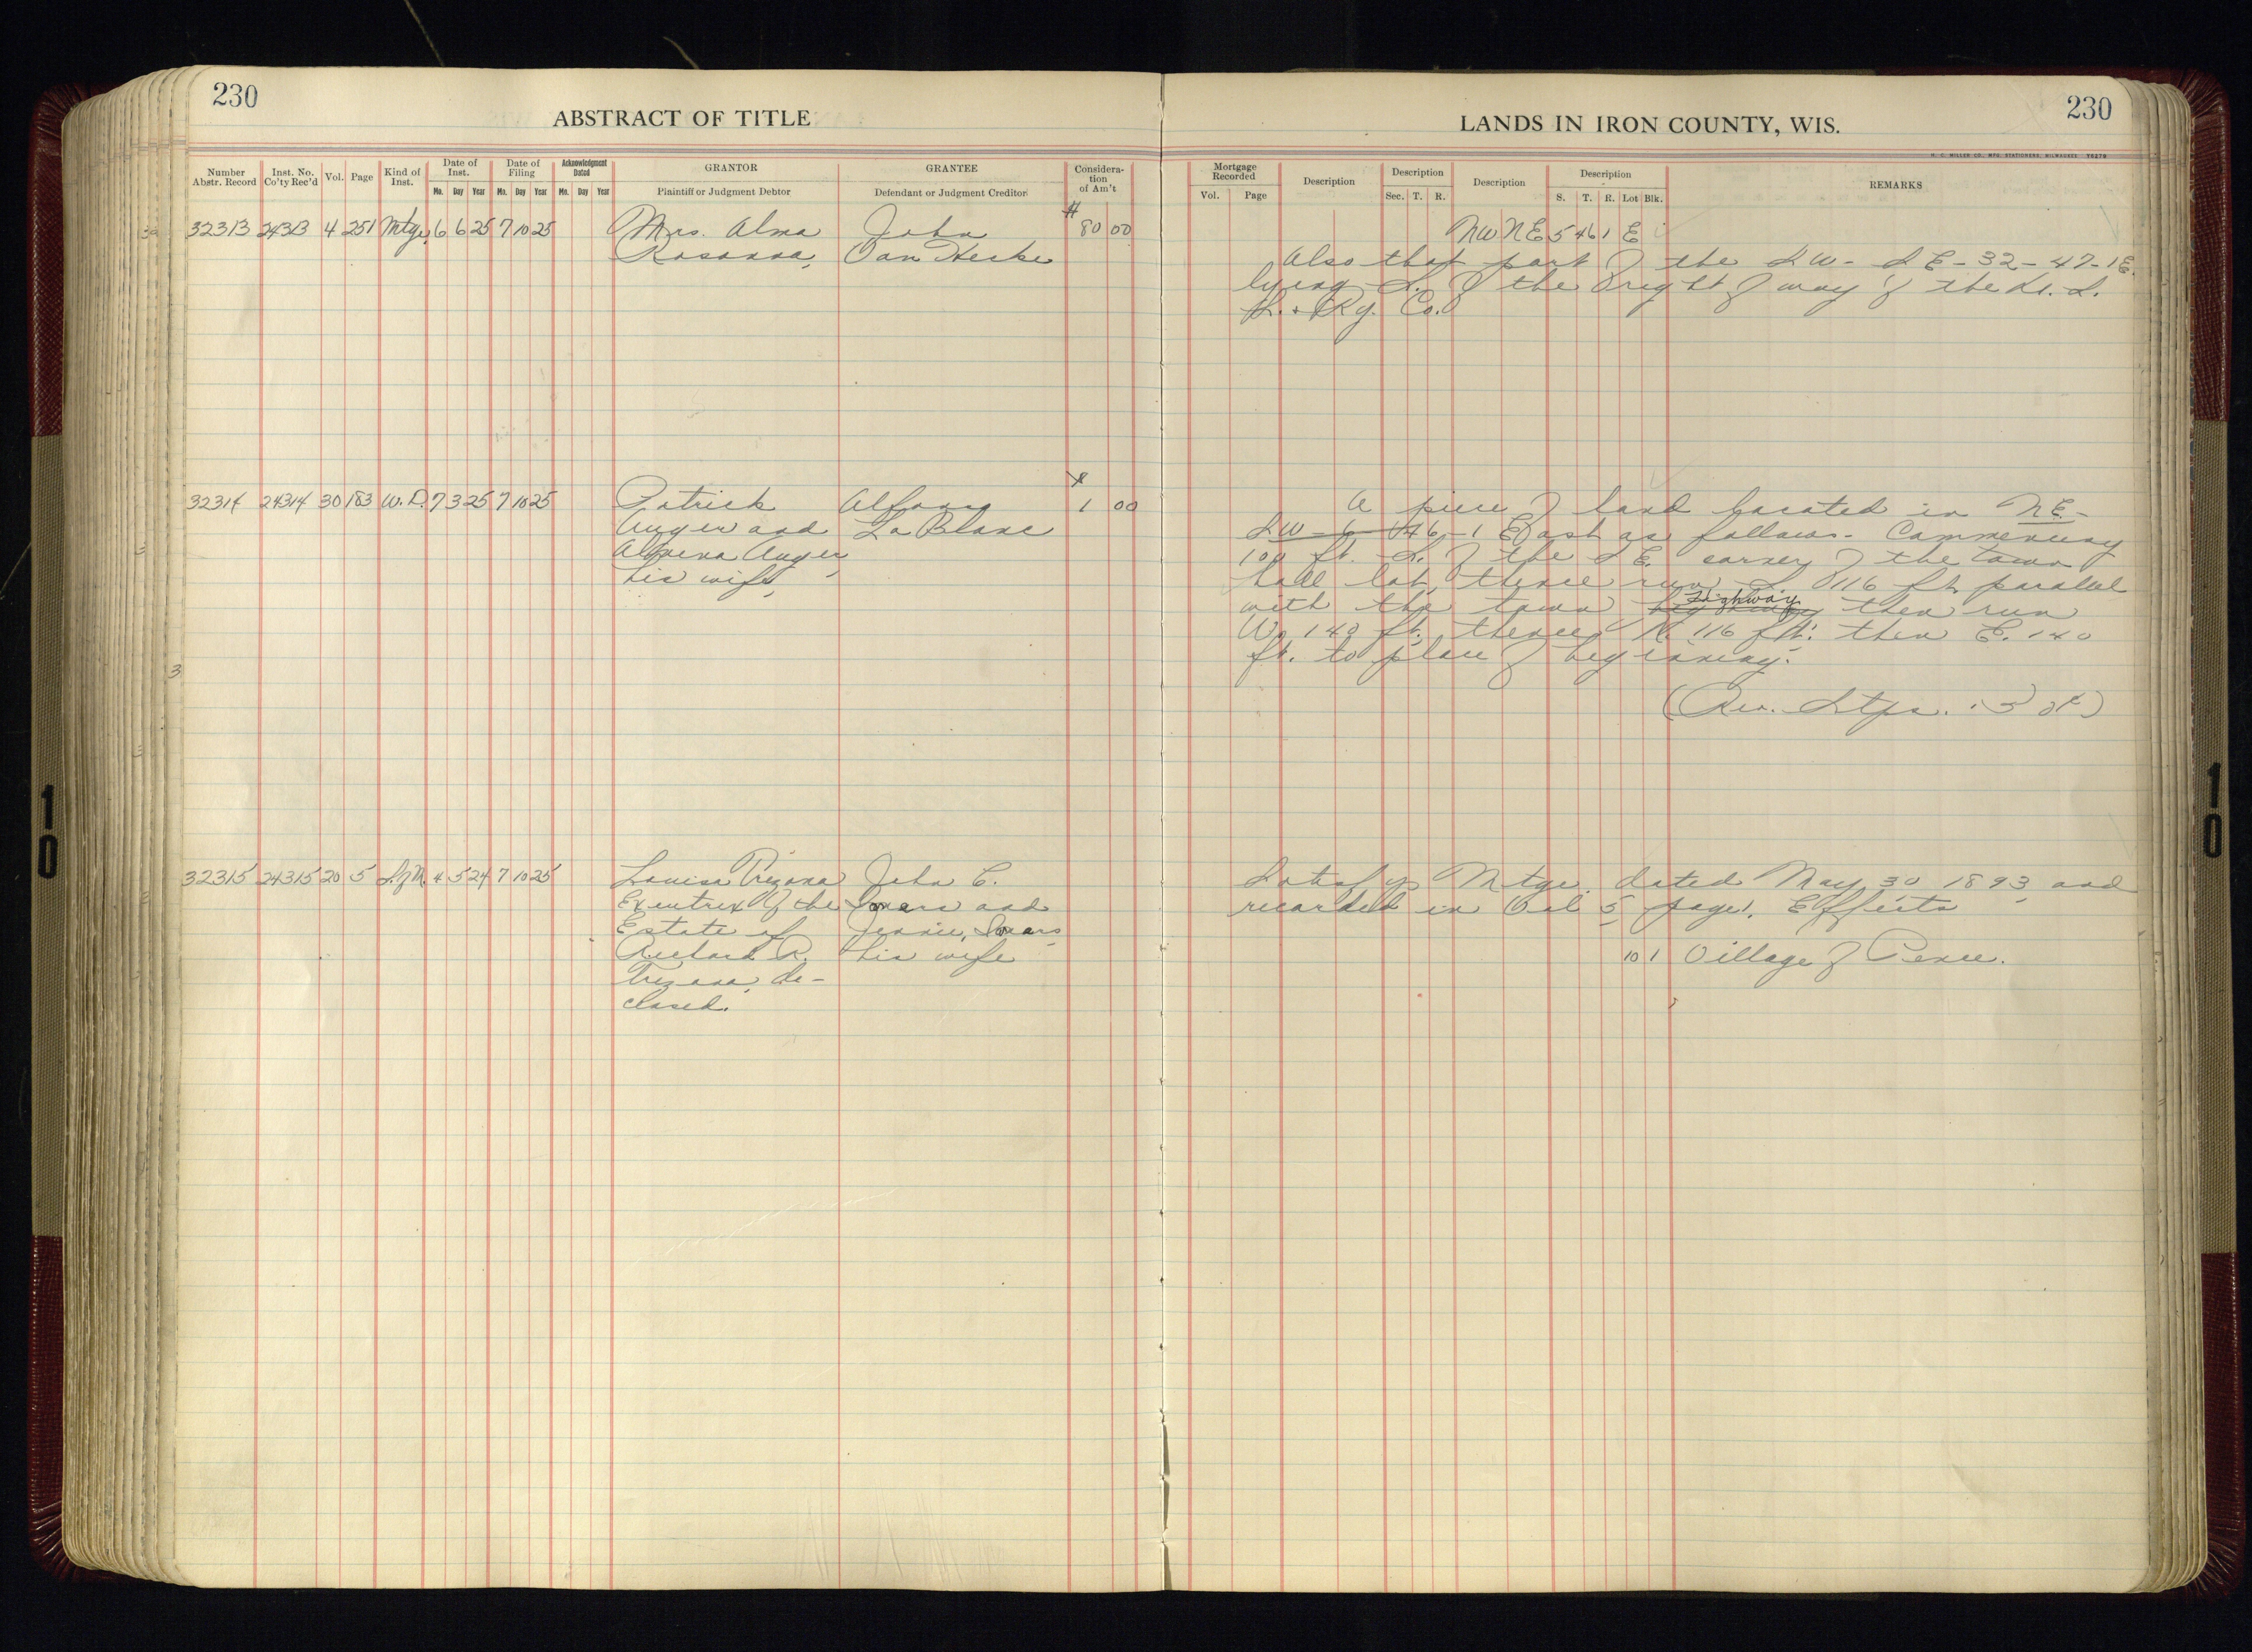 230
ABSTRACT OF TITLE
Number Abstr. Record
Inst. No. Co'ty Rec'd
Vol.
Page
Kind of Inst.
Date of Inst.
Mo. Day Year
Date of Filing
Mo. Day Year
Acknowledgment Dated
Mo. Day Year
GRANTOR
Plaintiff or Judgment Debtor
GRANTEE
Defendant or Judgment Creditor
Considera-
tion
of Am't
32313 24313 4 251 Mtge. 6 6 25 7 10 25 Mrs. Alma John $80 00
Van
32314 24314 30 183 W.D. 7 3 25 7 10 25 Patrick 1 00
Auger and La Blanc
Auger,
his wife,
32315 24315 20 5 S.of M. 4 5 24 7 10 25 Louisa Trezona John C.
Executrix of the and
Estate of Jennie,
Richard R. his wife
Trezona, de-
ceased.
LANDS IN IRON COUNTY, WIS.
230
H. C. MILLER CO., MFG. STATIONERS, MILWAUKEE
Mortgage Recorded
Vol. Page
Description
Description
Sec. T. R.
Description
Description
S. T. R. Lot Blk.
REMARKS
NW NE 5 46 1 E
Also that part of the SW - SE - 32 - 47 - 1 E.
lying S. of the right of way of the
Ry. Co.
A piece of land located in NE -
SW - 6 - 46 - 1 East as follows. Commencing
100 ft. S. of the SE. corner of the town
hall lot, thence run S 116 ft. parallel
with the town highway then run
W. 140 ft. thence N. 116 ft. then E. 140
ft. to place of beginning.
(Rev. Stps.
Satisfys Mtge. dated May 30 1893, and
recorded in Vol 5, page 1. Effects
10 1 Village of Pence.
10
10